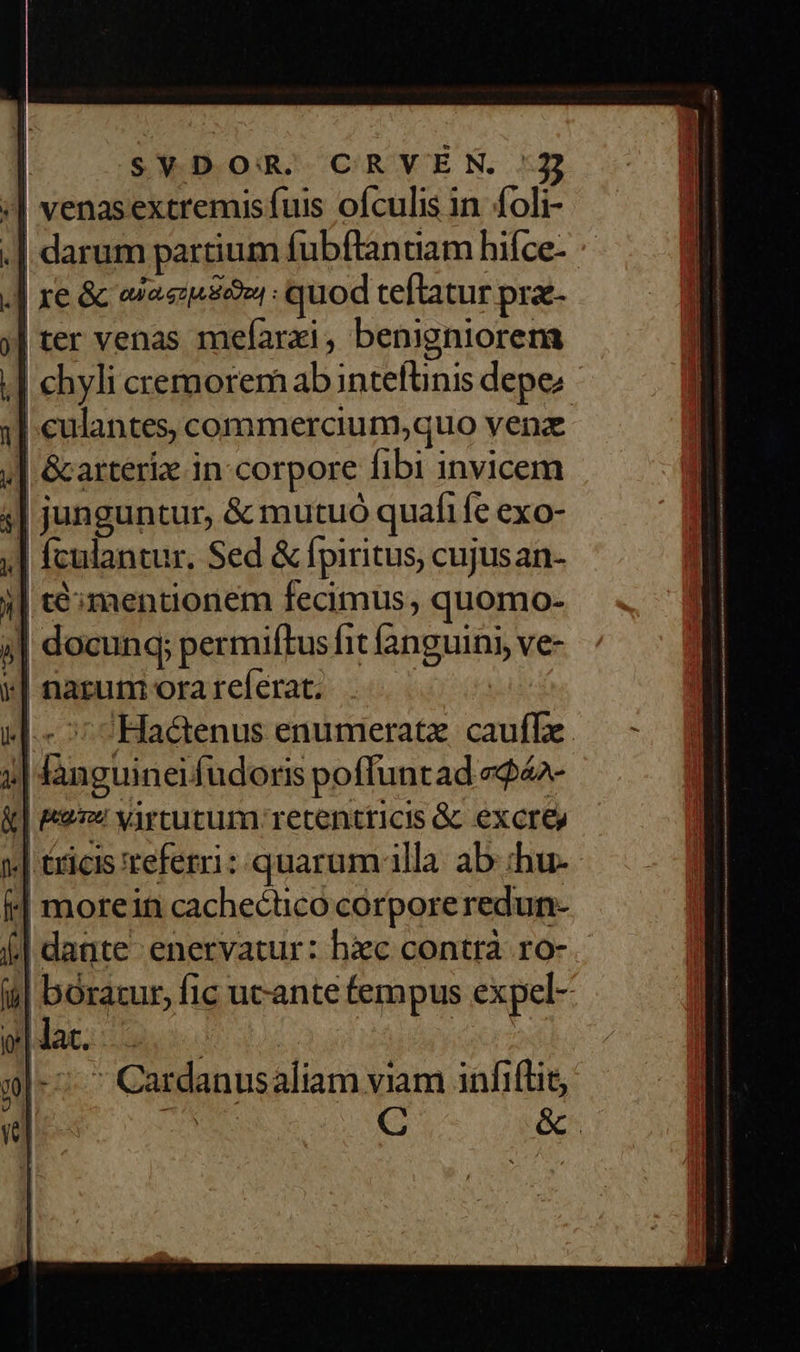 SVDOR. CRVEN. 33
venas extremis ſuis oſculis in ſoli-
darum partium ſubſtantiam hiſce-
re & ἀναστομοῦσθαι: quod teſtatur præ-
ter venas meſaræi, benigniorem
chyli cremorem ab inteſtinis depe-
culantes, commercium, quo venæ
& arteriæ in corpore ſibi invicem
junguntur, & mutuò quaſi ſe exo-
ſculantur. Sed & ſpiritus, cujus an-
tè mentionem fecimus, quomo-
docunq; permiſtus ſit ſanguini, ve-
narum ora reſerat.
Hactenus enumeratæ cauſſæ
ſanguinei ſudoris poſſunt ad σφάλ-
ματα virtutum retentricis & excre-
tricis referri: quarum illa ab hu-
more in cachectico corpore redun-
dante enervatur: hæc contrà ro-
boratur, ſic ut ante tempus expel-
lat.
Cardanus aliam viam inſiſtit,
C &